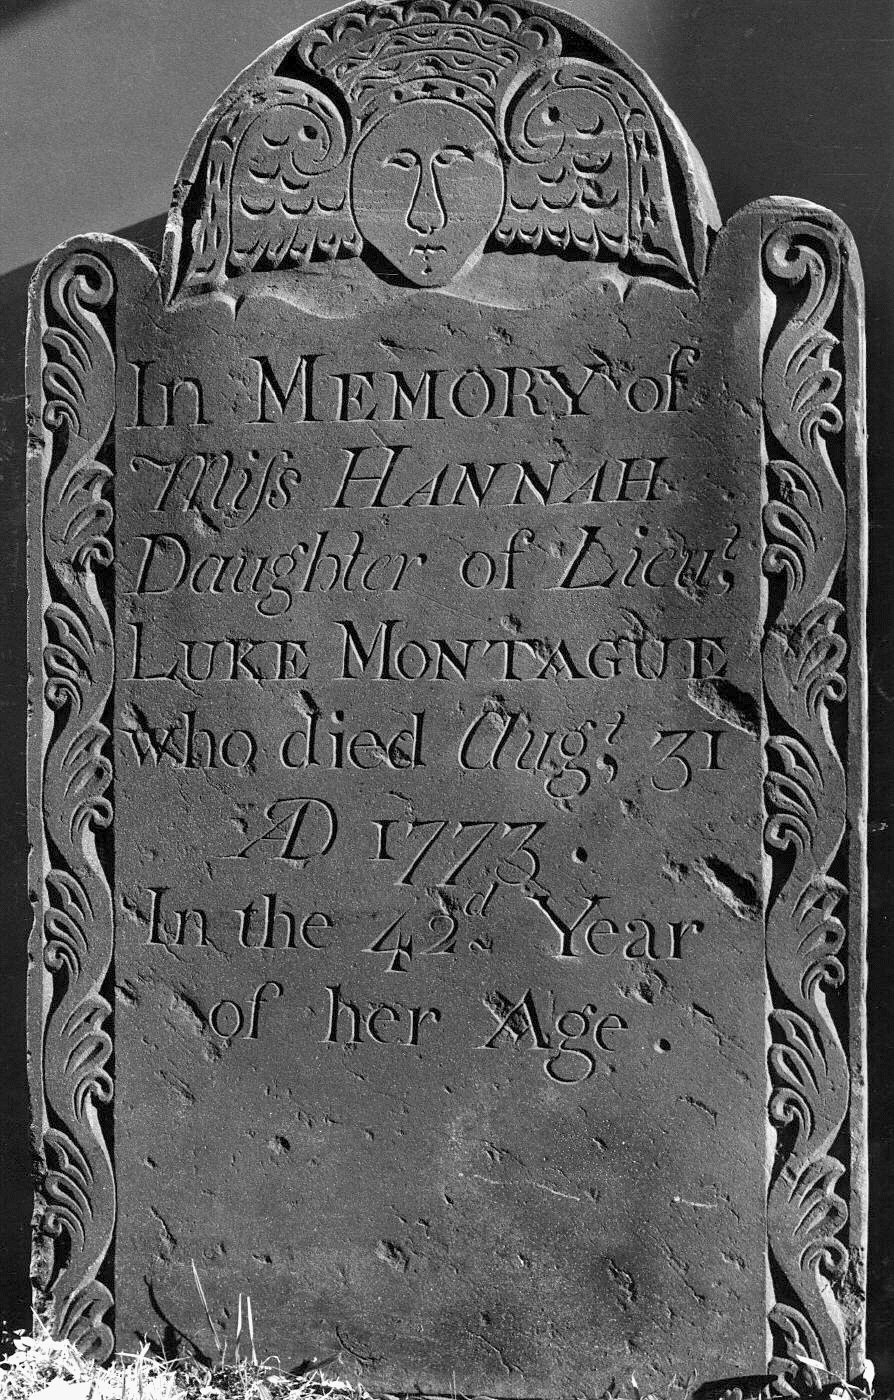 In MEMORY of
Miſs HANNAH
Daughter of Lieuᵗ;
LUKE MONTAGUE
who died Augᵗ; 31
AD 1773.
In the 42ᵈ Year
of her Age.